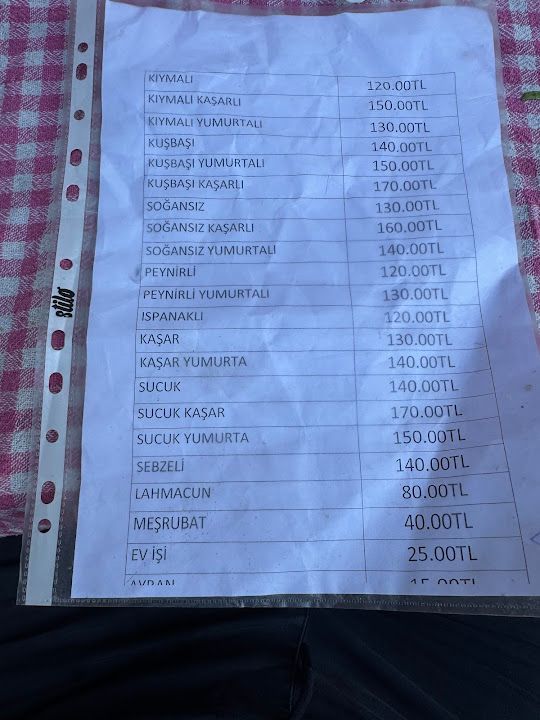 KIYMALI 120.00TL
KIYMALI KAŞARLI 150.00TL
KIYMALI YUMURTALI 130.00TL
KUŞBAŞI 140.00TL
KUŞBAŞI YUMURTALI 150.00TL
KUŞBAŞI KAŞARLI 170.00TL
SOĞANSIZ 130.00TL
SOĞANSIZ KAŞARLI 160.00TL
SOĞANSIZ YUMURTALI 140.00TL
PEYNİRLİ 120.00TL
PEYNİRLİ YUMURTALI 130.00TL
ISPANAKLI 120.00TL
KAŞAR 130.00TL
KAŞAR YUMURTA 140.00TL
SUCUK 140.00TL
SUCUK KAŞAR 170.00TL
SUCUK YUMURTA 150.00TL
SEBZELİ 140.00TL
LAHMACUN 80.00TL
MEŞRUBAT 40.00TL
EV İŞİ 25.00TL
AYRAN 15.00TL